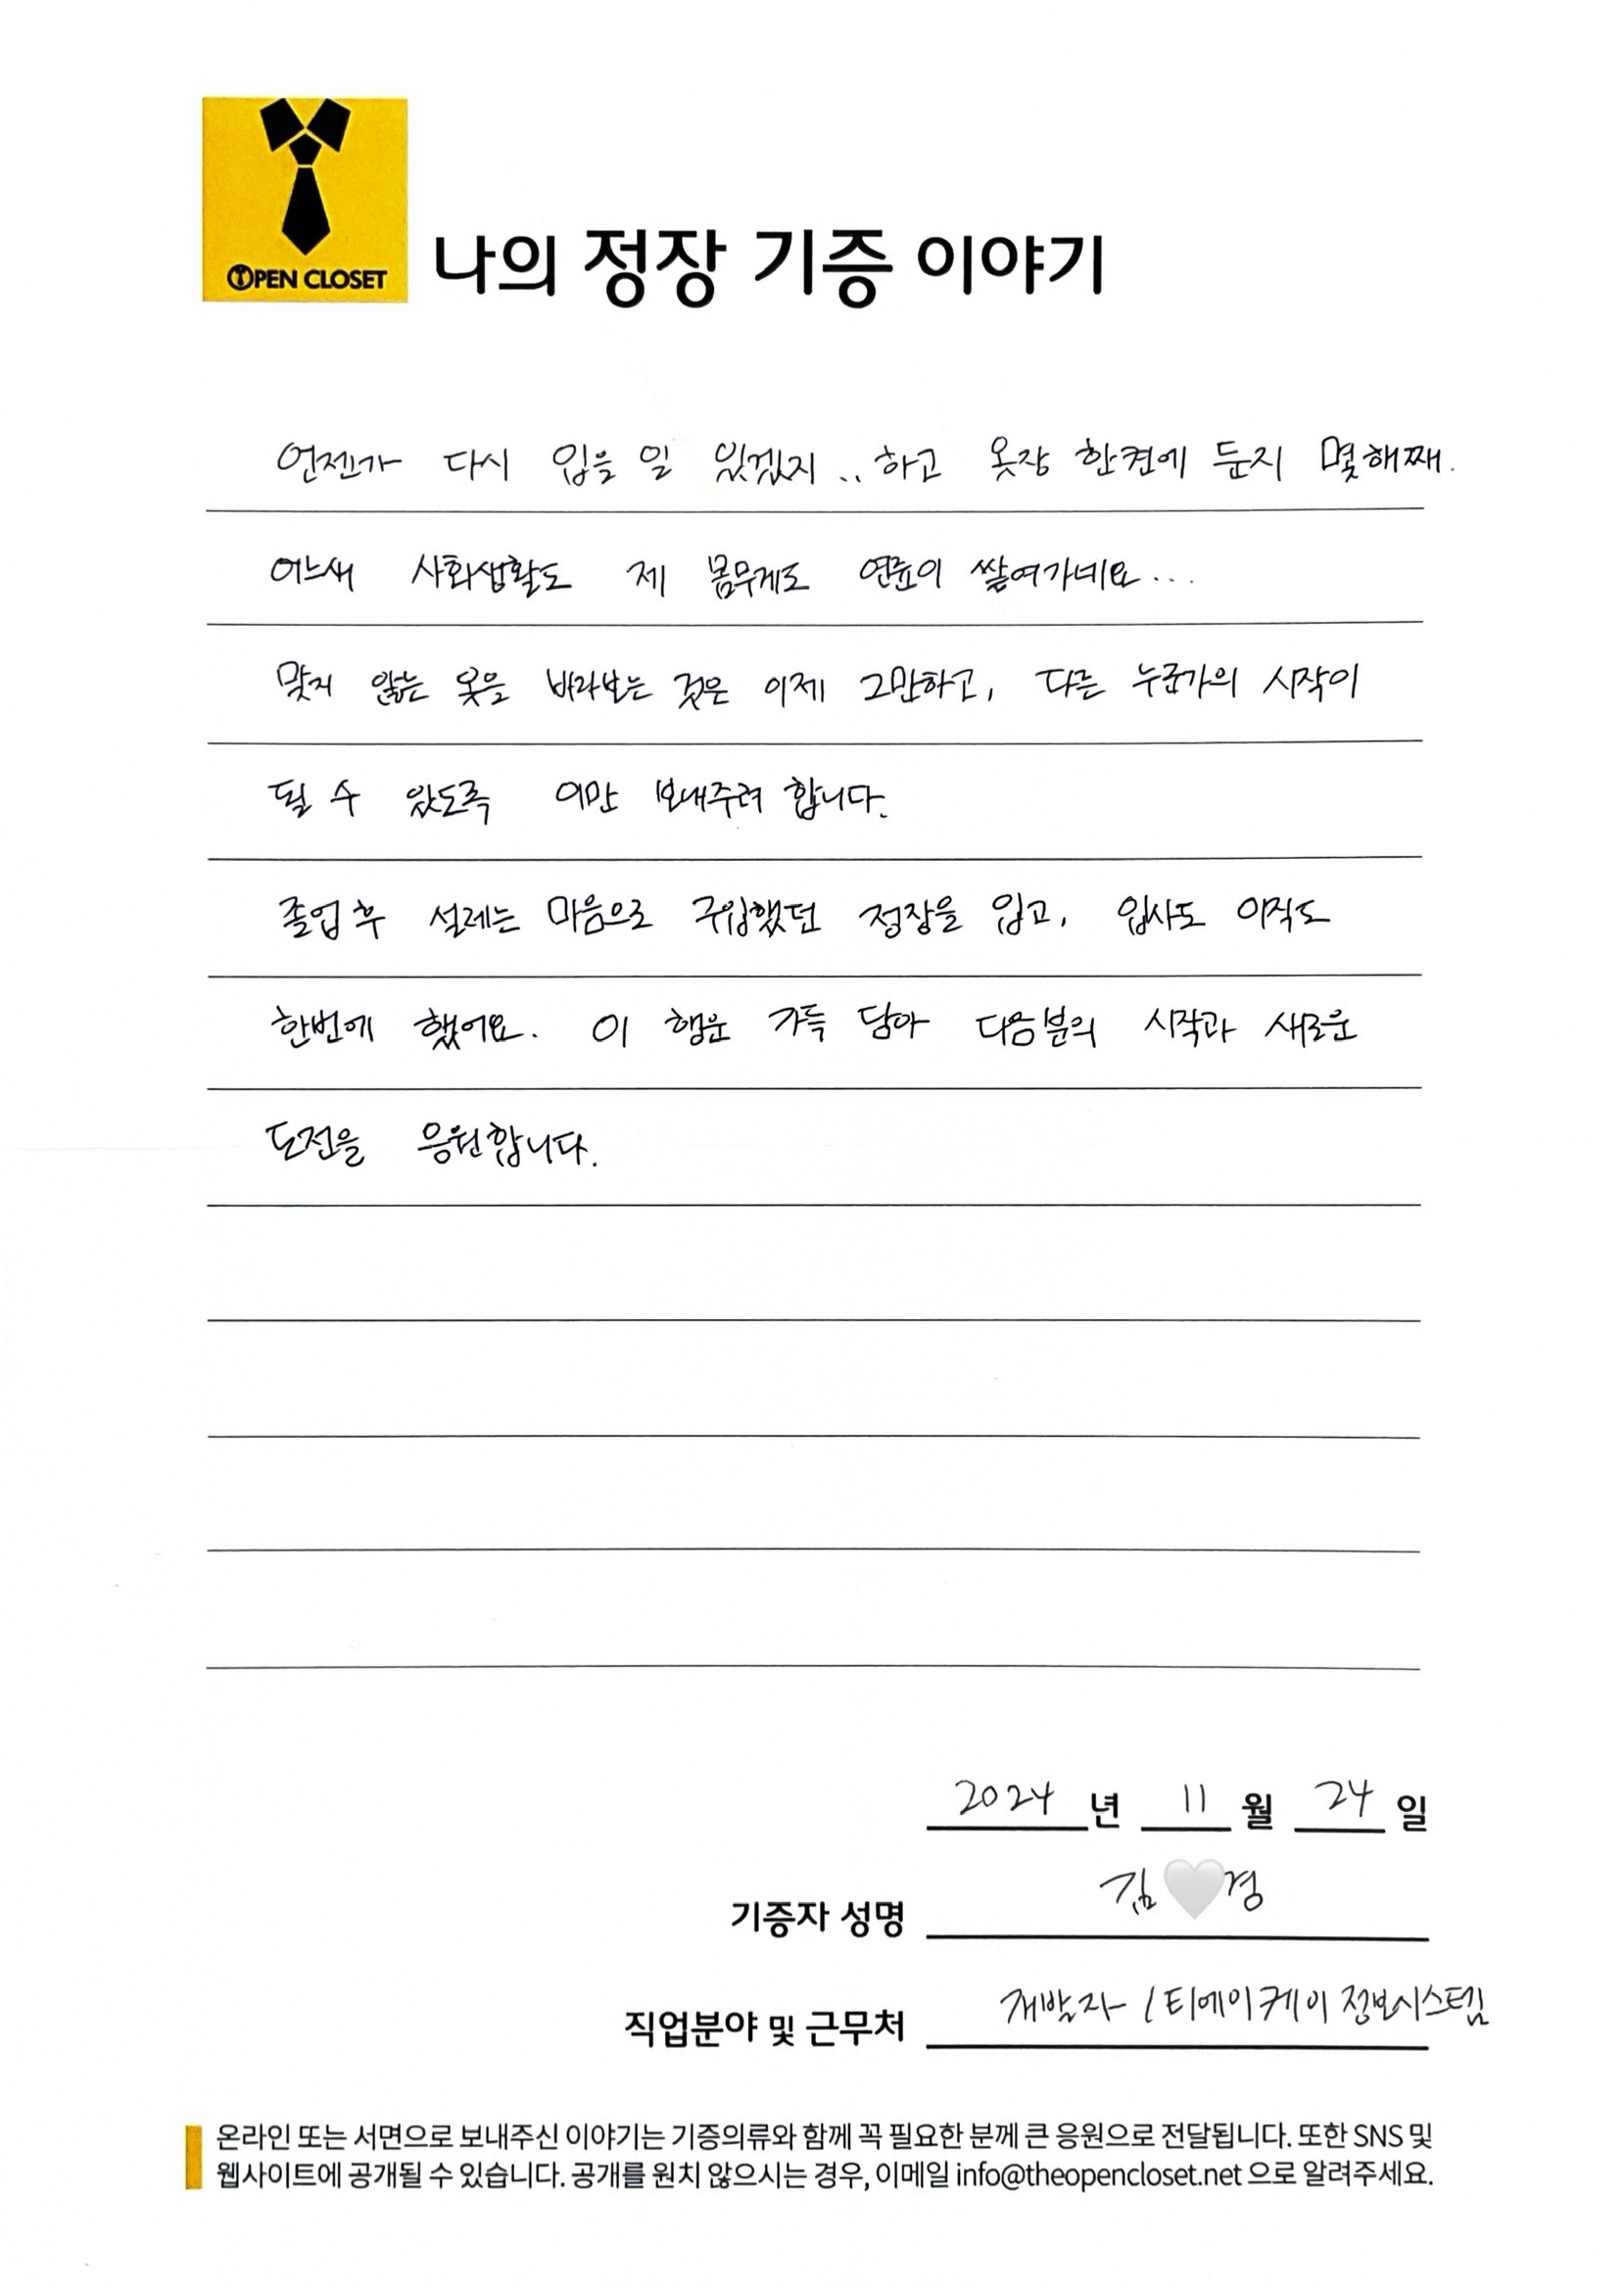 OPEN CLOSET
나의 정장 기증 이야기
언젠가 다시 입을 일 있겠지.. 하고 옷장 한켠에 둔지 몇해째.
어느새 사회생활도 제 몸무게도 연륜이 쌓여가네요...
맞지 않는 옷을 바라보는 것은 이제 그만하고, 다른 누군가의 시작이
될 수 있도록 이만 보내주려 합니다.
졸업 후 설레는 마음으로 구입했던 정장을 입고, 입사도 이직도
한번에 했어요. 이 행운 가득 담아 다음분의 시작과 새로운
도전을 응원합니다.
2024 년 11 월 24 일
기증자 성명 김🤍경
직업분야 및 근무처 개발자 / 티에이케이 정보시스템
온라인 또는 서면으로 보내주신 이야기는 기증의류와 함께 꼭 필요한 분께 큰 응원으로 전달됩니다. 또한 SNS 및
웹사이트에 공개될 수 있습니다. 공개를 원치 않으시는 경우, 이메일 info@theopencloset.net 으로 알려주세요.